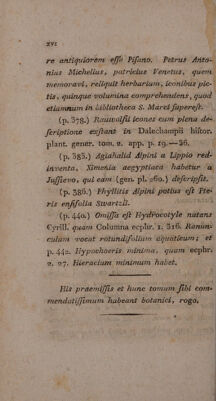 XVI
re antiquiorem esse Pisano. Petrus Anto-
nius Michelius, patricius Venetus, quem
memoravi, reliquit herbarium, iconibus pic-
tis, quinque volumina comprehendens, quod
etiamnum in bibliotheca S. Marci superest.
(p. 378.) Rauwolfii icones cum plena de-
scriptione exstant in Dalechampii histor.
plant. gener. tom. 2. app. p. 19.—26.
(p. 383.) Agiahalid Alpini a Lippio red-
inventa, Ximenia aegyptiaca habetur a
Jussievo, qui eam (gen. pl. 260.) descripsit.
(p. 386.) Phyllitis Alpini potius est Pte-
ris ensifolia Swartzii.
(p. 440.) Omissa est Hydrocotyle natans
Cyrill. quam Columna ecphr. 1. 316. Ranun-
culum vocat rotundifolium aquaticum; et
p. 442. Hypochoeris minima, quam ecphr.
2. 27. Hieracium minimum habet.
His praemissis et hunc tomum sibi com-
mendatissimum habeant botanici, rogo.